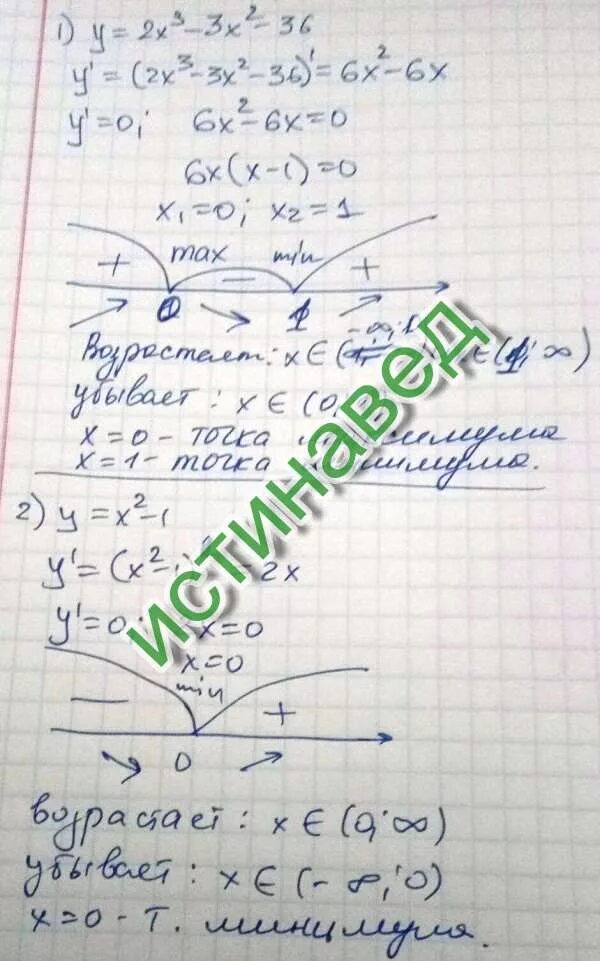 1) y = 2x³ - 3x² - 36
y' = (2x³ - 3x² - 36)' = 6x² - 6x
y' = 0; 6x² - 6x = 0
6x(x - 1) = 0
x₁ = 0; x₂ = 1
+ max − min +
0 1
Возрастает: x ∈ ∈ (1; ∞)
убывает: x ∈ (0
x = 0 - точка
x = 1 - точка
2) y = x² - 1
y' = (x² - 2x
y' = 0; x = 0
x = 0
− min +
0
возрастает: x ∈ (0; ∞)
убывает: x ∈ (- ∞; 0)
x = 0 - т. минимума.
истинавед